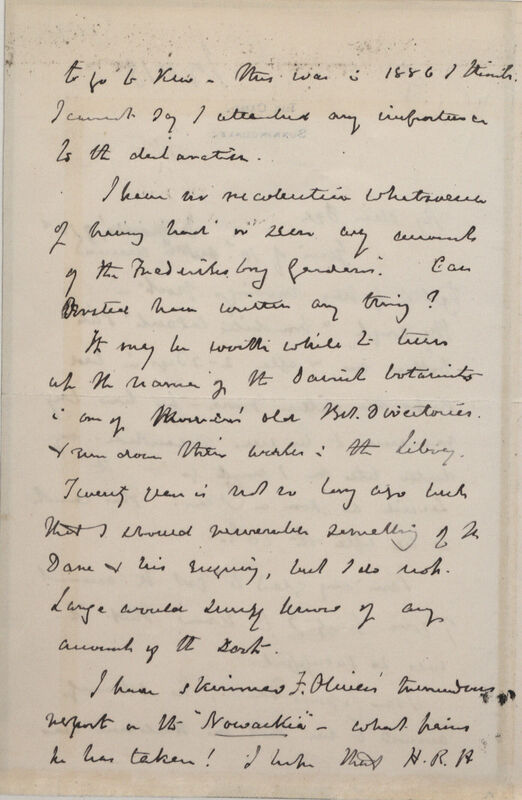 to go to Kew - this was in 1886 I think.
I cannot say I attached any importance
to the declaration.
I have no recollection whatsoever
of having had or seen any accounts
of the Fredericksborg Gardens. Can
have written any thing?
It may be worth while to turn
up the names of the Danish botanists
in one of old Bot. Directories.
& run down their works in the Library.
Twenty years is not so long ago but
that I should remember something of the
Dane & his enquiry, but I do not.
Lange would surely know of any
account of the sort.
I have skimmed F. Oliver's tremendous
report on the "Nowaikia" - what pains
he has taken! I hope that H.R.H